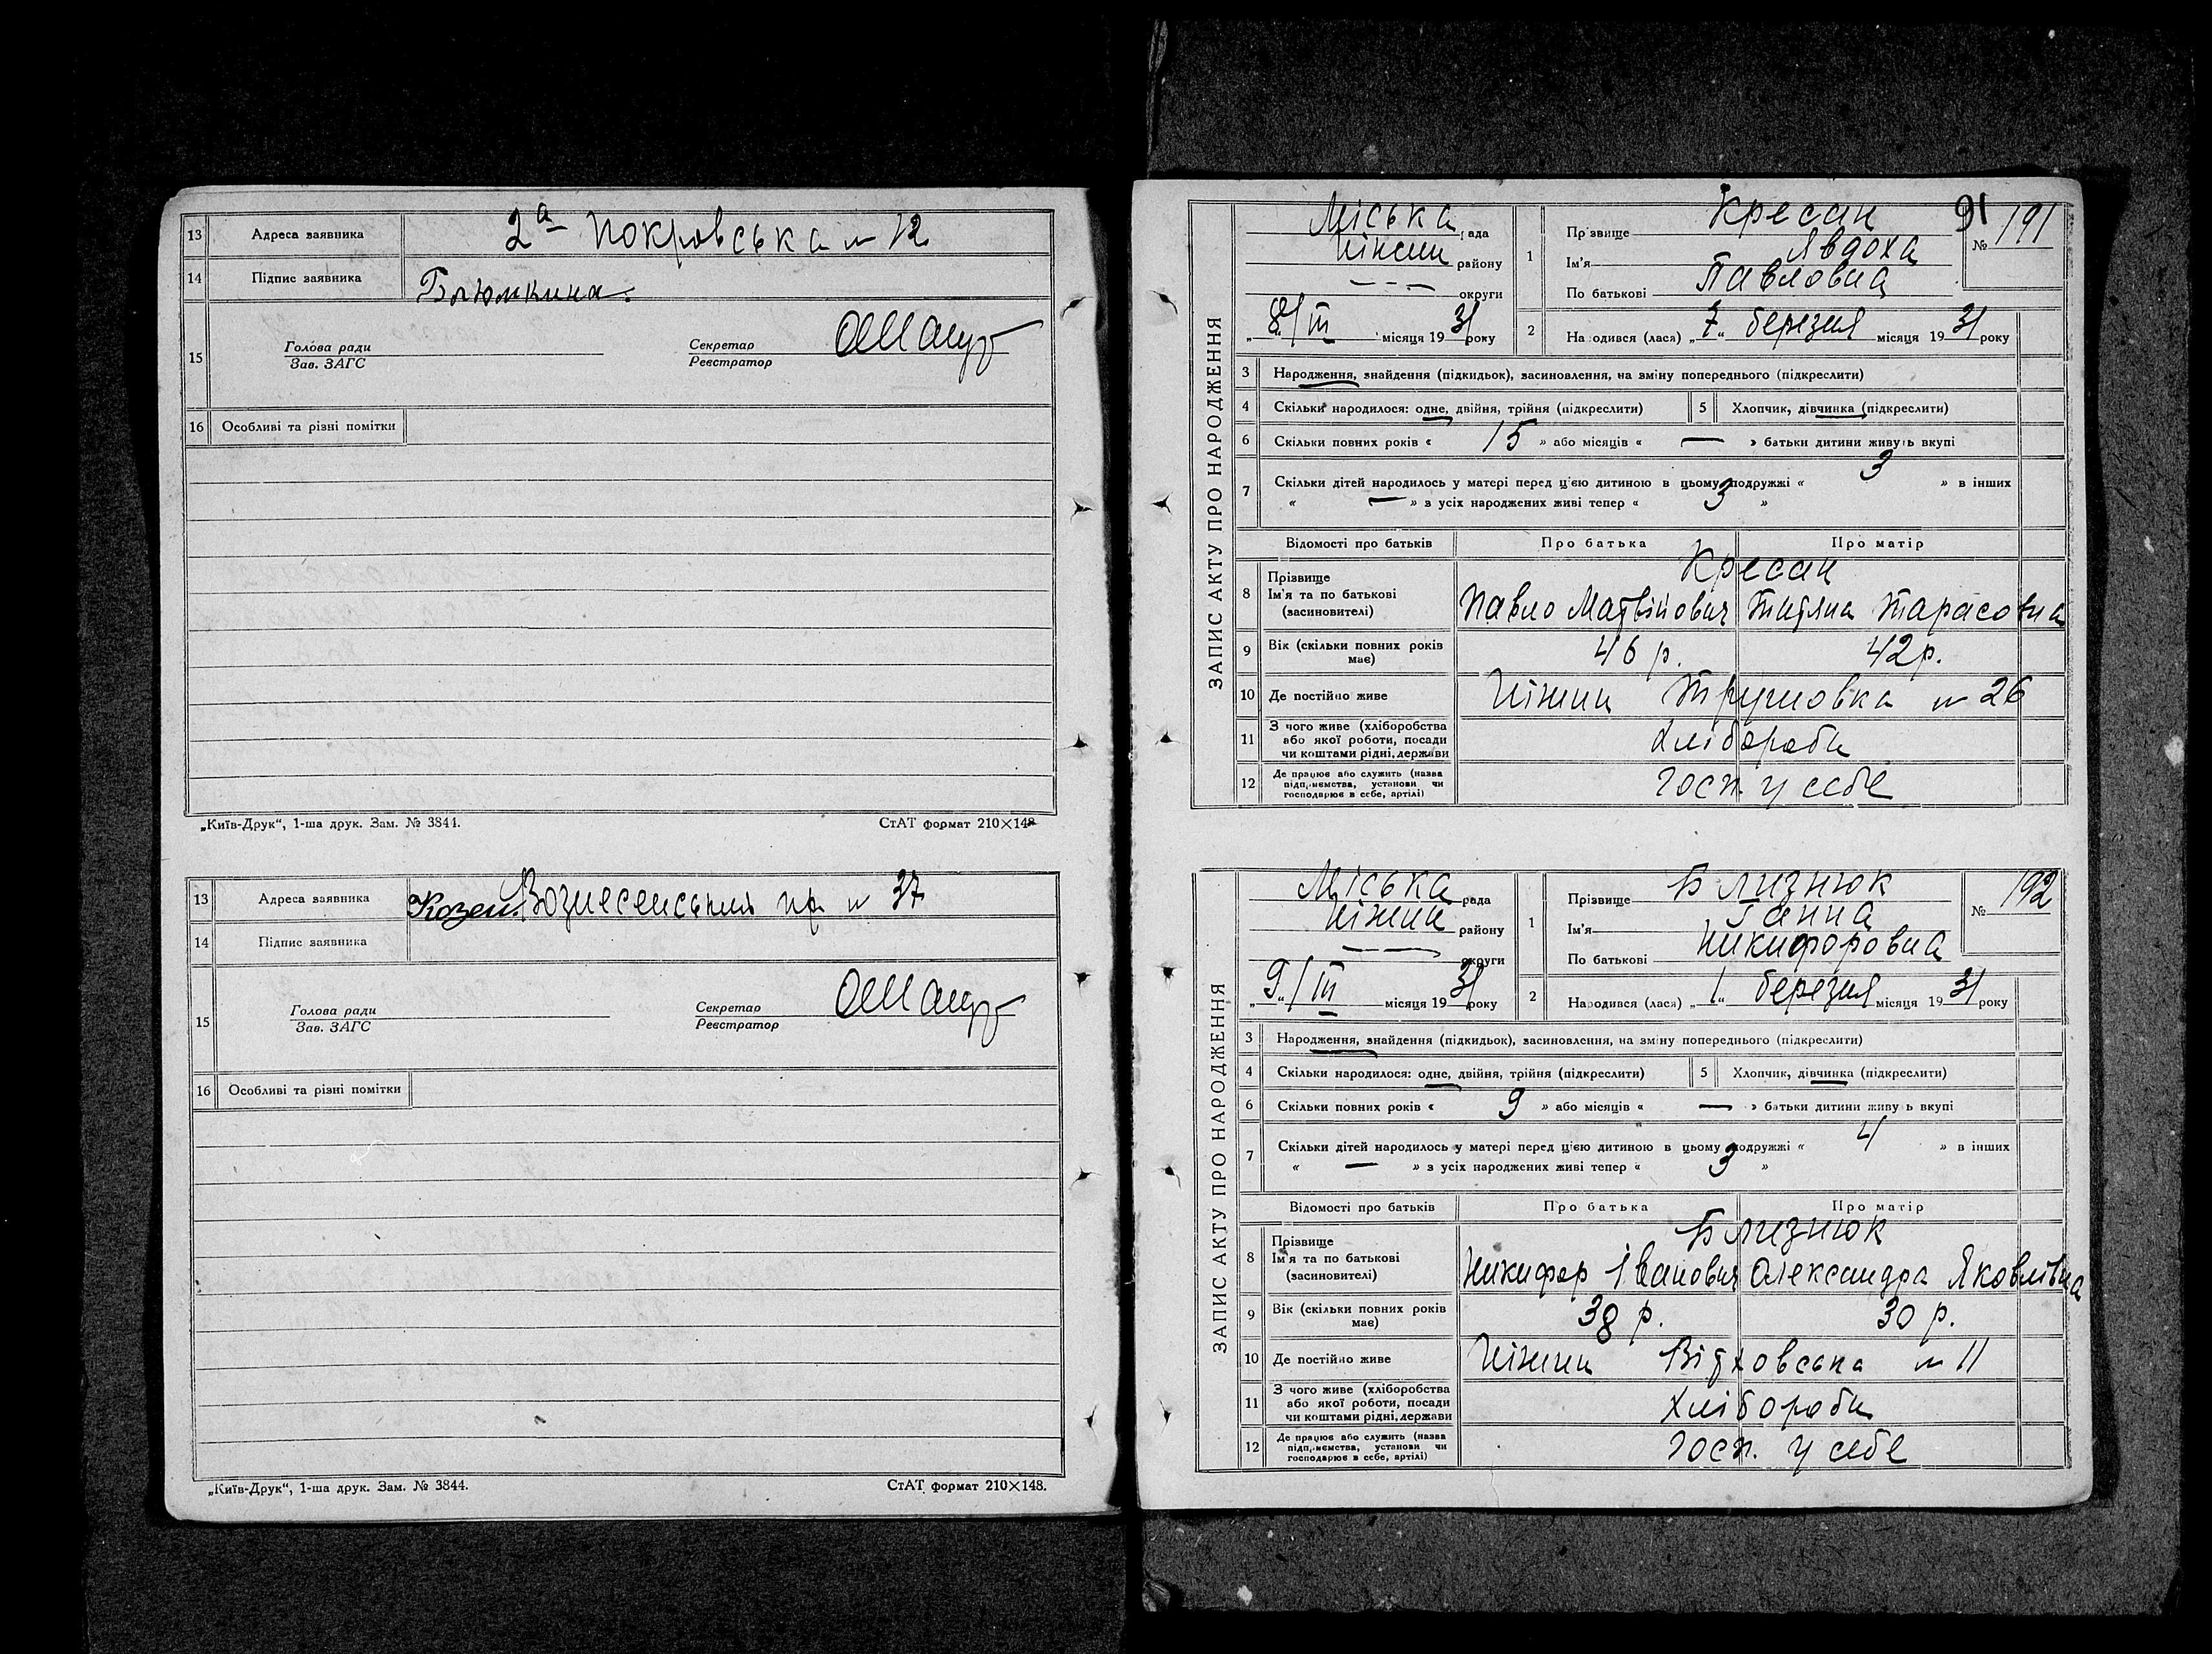 13 Адреса заявника 2а Покровська № 12
14 Підпис заявника Блюмкина.
15 Голова ради
Зав. ЗАГС
Секретар
Реєстратор
16 Особливі та різні помітки
„Київ-Друк“, 1-ша друк. Зам. № 3844. СтАТ формат 210×148
13 Адреса заявника Вознесенський пр. № 37
14 Підпис заявника Козел
15 Голова ради
Зав. ЗАГС
Секретар
Реєстратор
16 Особливі та різні помітки
„Київ-Друк“, 1-ша друк. Зам. № 3844. СтАТ формат 210×148.
91
ЗАПИС АКТУ ПРО НАРОДЖЕННЯ
Міська рада
Ніжин району
— — — округи
„8“/III місяця 1931 року
1 Прізвище Кресан
Ім'я Явдоха
По батькові Павловна
№ 191
2 Народився (лася) „7“ березня місяця 1931 року
3 Народження, знайдення (підкидьок), засиновлення, на зміну попереднього (підкреслити)
4 Скільки народилося: одне, двійня, трійня (підкреслити) 5 Хлопчик, дівчинка (підкреслити)
6 Скільки повних років « 15 » або місяців « — » батьки дитини живуть вкупі
7 Скільки дітей народилось у матері перед цією дитиною в цьому подружжі « 3 » в інших
« — » з усіх народжених живі тепер « 3 »
Відомості про батьків Про батька Про матір
8 Прізвище Кресан
Ім'я та по батькові Павло Матвійович Титяна Тарасовна
(засиновителі)
9 Вік (скільки повних років має) 46 р. 42 р.
10 Де постійно живе Ніжин № 26
11 З чого живе (хліборобства
або якої роботи, посади
чи коштами рідні, держави Хлібороби
12 Де працює або служить (назва
підприємства, установи чи
господарює в себе, артілі) госп. у себе
ЗАПИС АКТУ ПРО НАРОДЖЕННЯ
Міська рада
Ніжин району
— — округи
„9“/III місяця 1931 року
1 Прізвище Близнюк
Ім'я Ганна
По батькові Никифоровна
№ 192
2 Народився (лася) „1“ березня місяця 1931 року
3 Народження, знайдення (підкидьок), засиновлення, на зміну попереднього (підкреслити)
4 Скільки народилося: одне, двійня, трійня (підкреслити) 5 Хлопчик, дівчинка (підкреслити)
6 Скільки повних років « 9 » або місяців « — » батьки дитини живуть вкупі
7 Скільки дітей народилось у матері перед цією дитиною в цьому подружжі « 4 » в інших
« — » з усіх народжених живі тепер « 3 »
Відомості про батьків Про батька Про матір
8 Прізвище Близнюк
Ім'я та по батькові Никифор Іванович Олександра Яковлівна
(засиновителі)
9 Вік (скільки повних років має) 38 р. 30 р.
10 Де постійно живе Ніжин № 11
11 З чого живе (хліборобства
або якої роботи, посади
чи коштами рідні, держави Хлібороби
12 Де працює або служить (назва
підприємства, установи чи
господарює в себе, артілі) госп. у себе